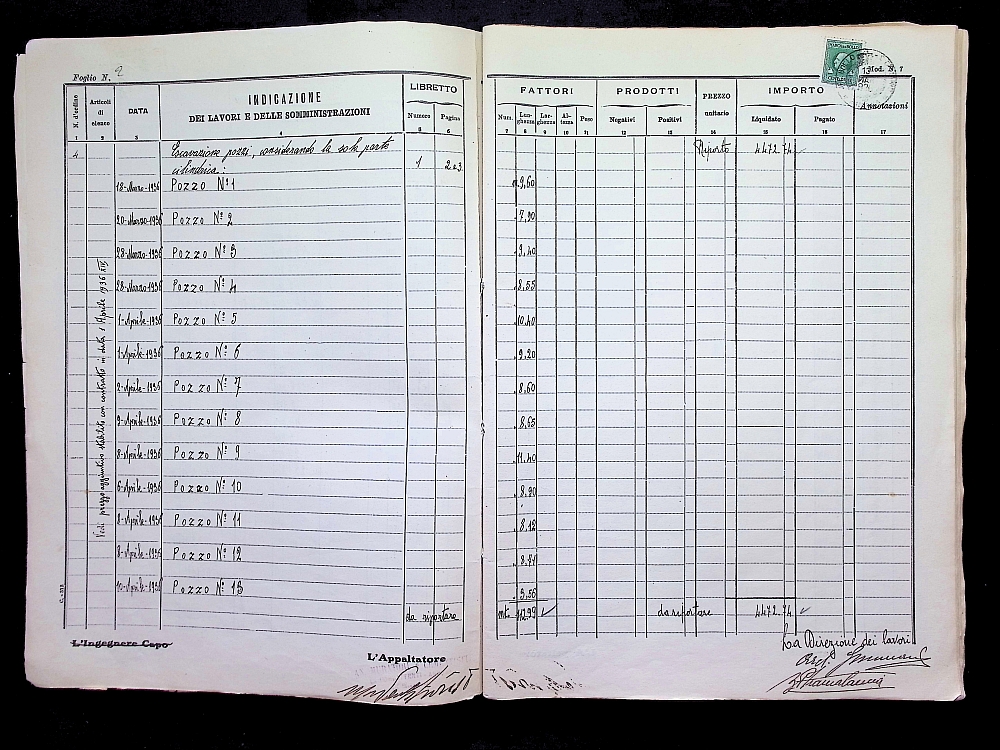 Foglio N. 2
Mod. N. 7
N. d'ordine
Articoli di elenco
DATA
INDICAZIONE
DEI LAVORI E DELLE SOMMINISTRAZIONI
LIBRETTO
Numero
Pagina
FATTORI
Num.
Lunghezza
Larghezza
Altezza
Peso
PRODOTTI
Negativi
Positivi
PREZZO
unitario
IMPORTO
Liquidato
Pagato
Annotazioni
1 2 3 4 5 6 7 8 9 10 11 12 13 14 15 16 17
4 Escavazione pozzi, considerando la sola parte 1 2 e 3 Riporto 4472.74
cilindrica:
18-Marzo-1936 Pozzo N° 1 9,60
20-Marzo-1936 Pozzo N° 2 7,90
28-Marzo-1936 Pozzo N° 3 9.40
28-Marzo-1936 Pozzo N° 4 8.55
1-Aprile-1936 Pozzo N° 5 10.40
1-Aprile-1936 Pozzo N° 6 9.20
2-Aprile-1936 Pozzo N° 7 8.60
Pozzo N° 8
8-Aprile-1936 Pozzo N° 9 11.40
6-Aprile-1936 Pozzo N° 10
8-Aprile-1936 Pozzo N° 11 8.12
8-Aprile-1936 Pozzo N° 12
10-Aprile-1936 Pozzo N° 13 3.56
Vedi prezzo aggiuntivo stabilito con contratto in data 1 Aprile 1936 XIV
da riportare mt. 112.99 da riportare 4472.74
L'Ingegnere Capo
L'Appaltatore
La Direzione dei lavori